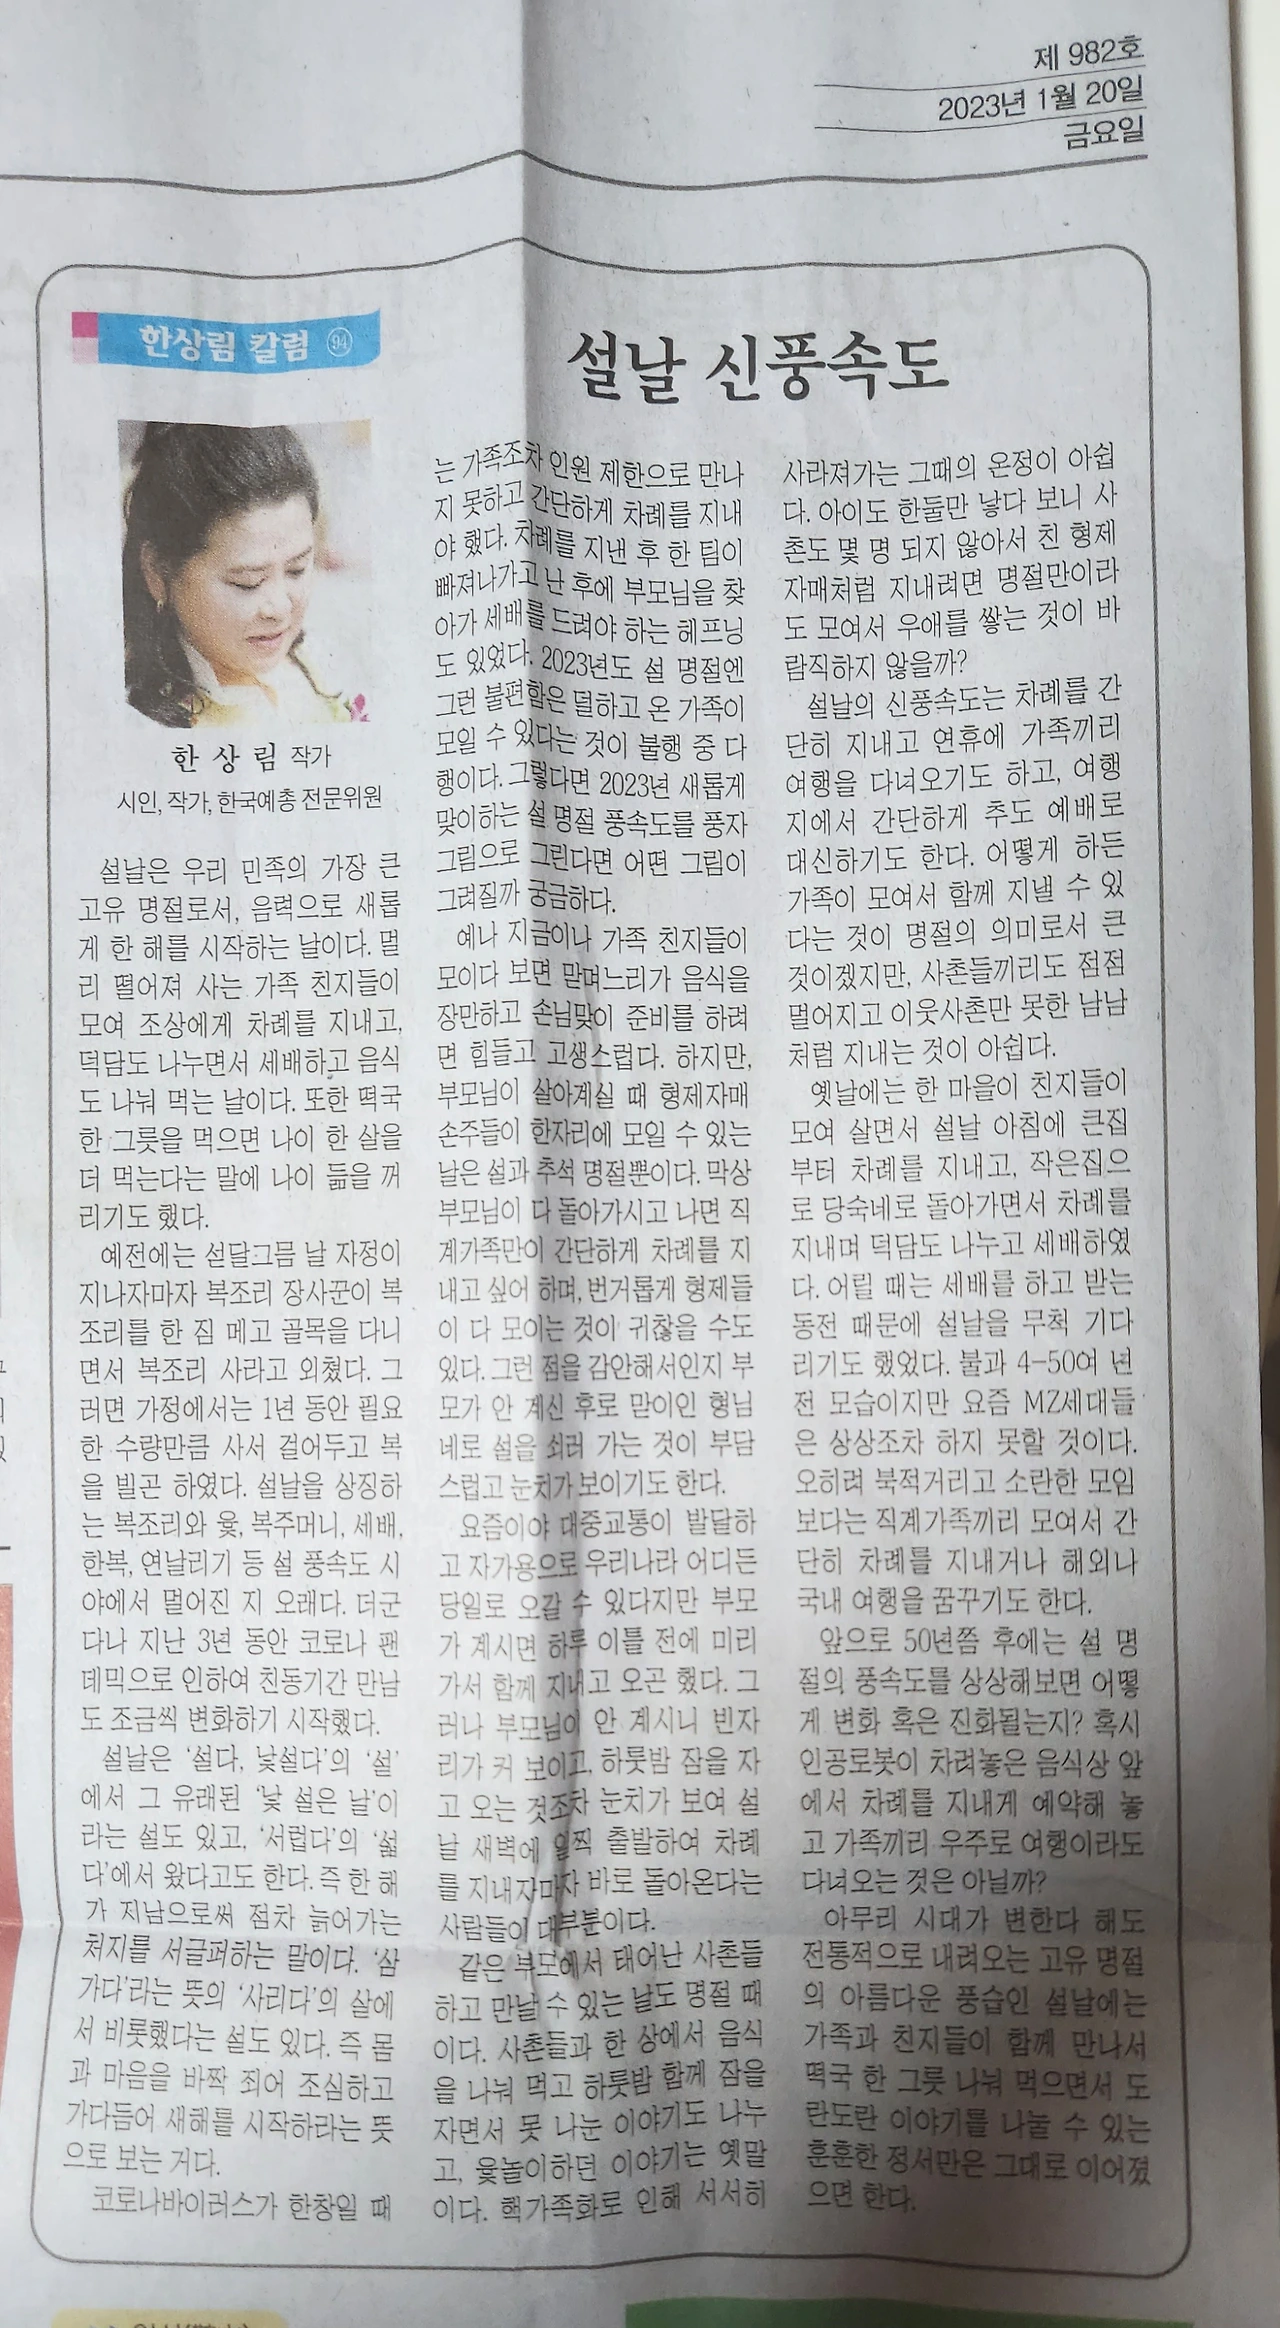 제 982호
2023년 1월 20일
금요일
한상림 칼럼 94
설날 신풍속도
한 상 림 작가
시인, 작가, 한국예총 전문위원
설날은 우리 민족의 가장 큰
고유 명절로서, 음력으로 새롭
게 한 해를 시작하는 날이다. 멀
리 떨어져 사는 가족 친지들이
모여 조상에게 차례를 지내고,
덕담도 나누면서 세배하고 음식
도 나눠 먹는 날이다. 또한 떡국
한 그릇을 먹으면 나이 한 살을
더 먹는다는 말에 나이 듦을 꺼
리기도 했다.
예전에는 섣달그믐 날 자정이
지나자마자 복조리 장사꾼이 복
조리를 한 짐 메고 골목을 다니
면서 복조리 사라고 외쳤다. 그
러면 가정에서는 1년 동안 필요
한 수량만큼 사서 걸어두고 복
을 빌곤 하였다. 설날을 상징하
는 복조리와 윷, 복주머니, 세배,
한복, 연날리기 등 설 풍속도 시
야에서 멀어진 지 오래다. 더군
다나 지난 3년 동안 코로나 팬
데믹으로 인하여 친동기간 만남
도 조금씩 변화하기 시작했다.
설날은 ‘설다, 낯설다’의 ‘설’
에서 그 유래된 ‘낯 설은 날’이
라는 설도 있고, ‘서럽다’의 ‘섧
다’에서 왔다고도 한다. 즉 한 해
가 지남으로써 점차 늙어가는
처지를 서글퍼하는 말이다. ‘삼
가다’라는 뜻의 ‘사리다’의 살에
서 비롯했다는 설도 있다. 즉 몸
과 마음을 바짝 죄어 조심하고
가다듬어 새해를 시작하라는 뜻
으로 보는 거다.
코로나바이러스가 한창일 때
는 가족조차 인원 제한으로 만나
지 못하고 간단하게 차례를 지내
야 했다. 차례를 지낸 후 한 팀이
빠져나가고 난 후에 부모님을 찾
아가 세배를 드려야 하는 헤프닝
도 있었다. 2023년도 설 명절엔
그런 불편함은 덜하고 온 가족이
모일 수 있다는 것이 불행 중 다
행이다. 그렇다면 2023년 새롭게
맞이하는 설 명절 풍속도를 풍자
그림으로 그린다면 어떤 그림이
그려질까 궁금하다.
예나 지금이나 가족 친지들이
모이다 보면 맏며느리가 음식을
장만하고 손님맞이 준비를 하려
면 힘들고 고생스럽다. 하지만,
부모님이 살아계실 때 형제자매
손주들이 한자리에 모일 수 있는
날은 설과 추석 명절뿐이다. 막상
부모님이 다 돌아가시고 나면 직
계가족만이 간단하게 차례를 지
내고 싶어 하며, 번거롭게 형제들
이 다 모이는 것이 귀찮을 수도
있다. 그런 점을 감안해서인지 부
모가 안 계신 후로 맏이인 형님
네로 설을 쇠러 가는 것이 부담
스럽고 눈치가 보이기도 한다.
요즘이야 대중교통이 발달하
고 자가용으로 우리나라 어디든
당일로 오갈 수 있다지만 부모
가 계시면 하루 이틀 전에 미리
가서 함께 지내고 오곤 했다. 그
러나 부모님이 안 계시니 빈자
리가 커 보이고, 하룻밤 잠을 자
고 오는 것조차 눈치가 보여 설
날 새벽에 일찍 출발하여 차례
를 지내자마자 바로 돌아온다는
사람들이 대부분이다.
같은 부모에서 태어난 사촌들
하고 만날 수 있는 날도 명절 때
이다. 사촌들과 한 상에서 음식
을 나눠 먹고 하룻밤 함께 잠을
자면서 못 나눈 이야기도 나누
고, 윷놀이하던 이야기는 옛말
이다. 핵가족화로 인해 서서히
사라져가는 그때의 온정이 아쉽
다. 아이도 한둘만 낳다 보니 사
촌도 몇 명 되지 않아서 친 형제
자매처럼 지내려면 명절만이라
도 모여서 우애를 쌓는 것이 바
람직하지 않을까?
설날의 신풍속도는 차례를 간
단히 지내고 연휴에 가족끼리
여행을 다녀오기도 하고, 여행
지에서 간단하게 추도 예배로
대신하기도 한다. 어떻게 하든
가족이 모여서 함께 지낼 수 있
다는 것이 명절의 의미로서 큰
것이겠지만, 사촌들끼리도 점점
멀어지고 이웃사촌만 못한 남남
처럼 지내는 것이 아쉽다.
옛날에는 한 마을이 친지들이
모여 살면서 설날 아침에 큰집
부터 차례를 지내고, 작은집으
로 당숙네로 돌아가면서 차례를
지내며 덕담도 나누고 세배하였
다. 어릴 때는 세배를 하고 받는
동전 때문에 설날을 무척 기다
리기도 했었다. 불과 4-50여 년
전 모습이지만 요즘 MZ세대들
은 상상조차 하지 못할 것이다.
오히려 북적거리고 소란한 모임
보다는 직계가족끼리 모여서 간
단히 차례를 지내거나 해외나
국내 여행을 꿈꾸기도 한다.
앞으로 50년쯤 후에는 설 명
절의 풍속도를 상상해보면 어떻
게 변화 혹은 진화될는지? 혹시
인공로봇이 차려놓은 음식상 앞
에서 차례를 지내게 예약해 놓
고 가족끼리 우주로 여행이라도
다녀오는 것은 아닐까?
아무리 시대가 변한다 해도
전통적으로 내려오는 고유 명절
의 아름다운 풍습인 설날에는
가족과 친지들이 함께 만나서
떡국 한 그릇 나눠 먹으면서 도
란도란 이야기를 나눌 수 있는
훈훈한 정서만은 그대로 이어졌
으면 한다.